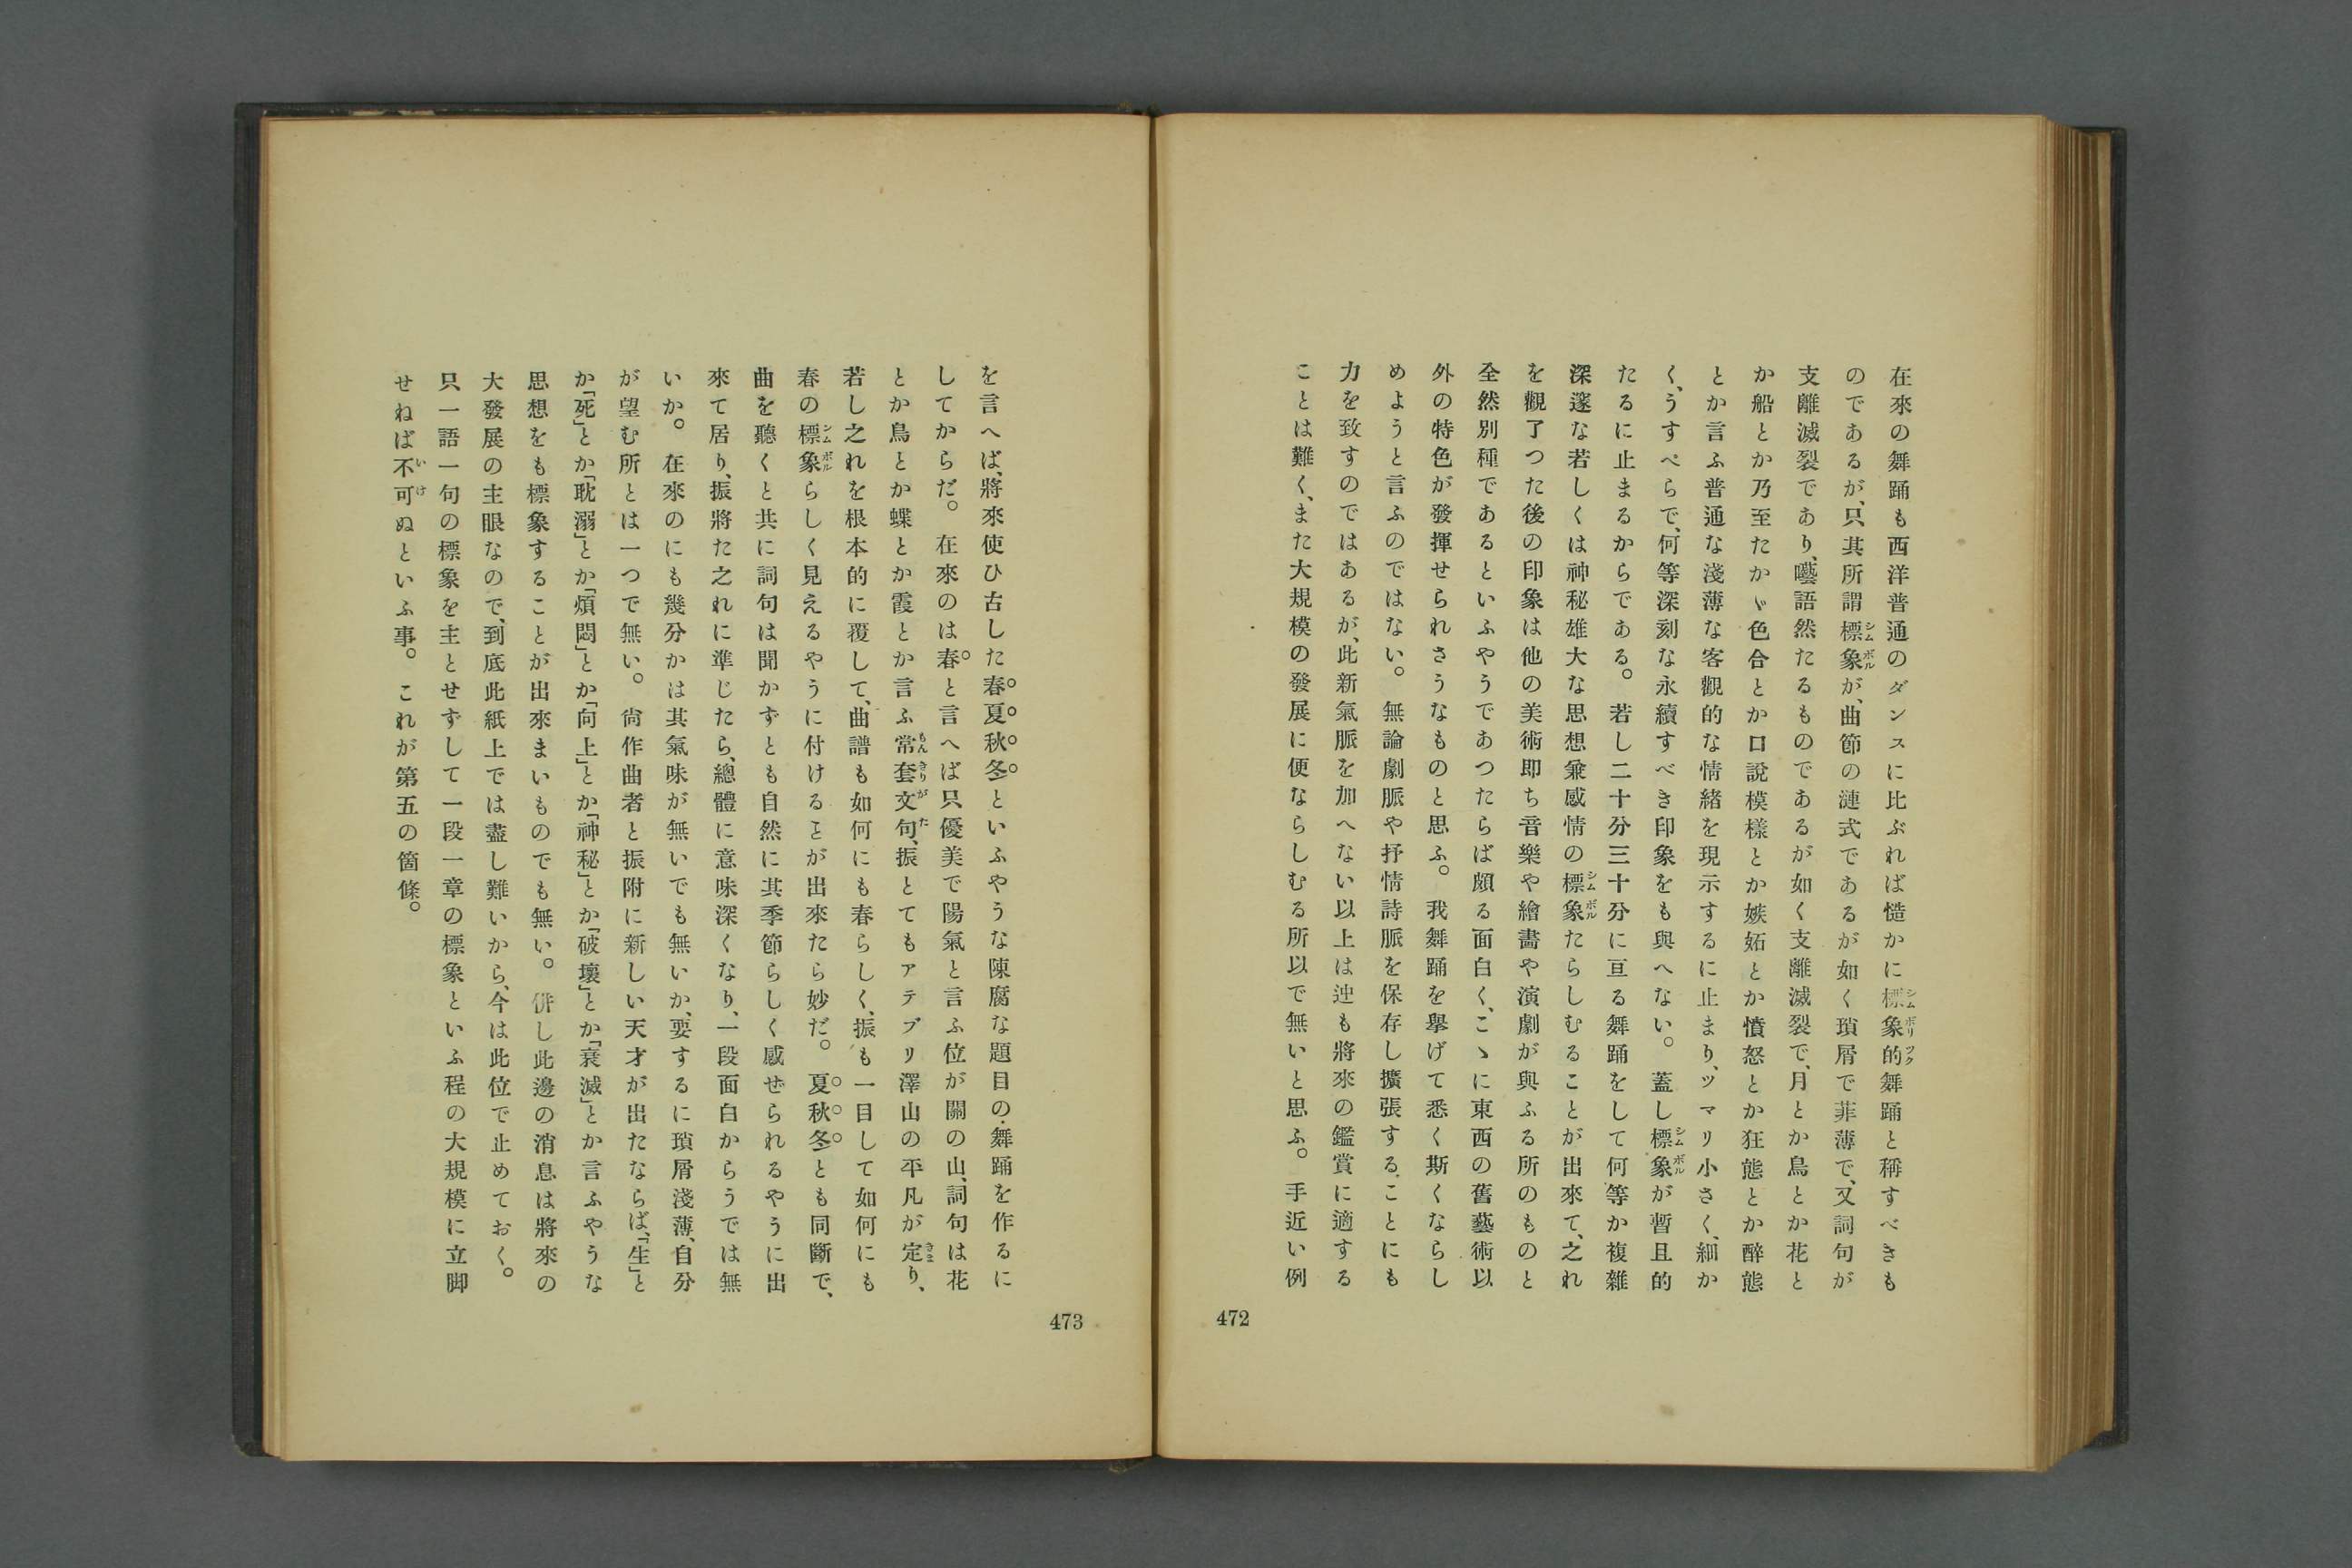 在來の舞踊も西洋普通のダンスに比ぶれば慥かに標象的舞踊と稱すべきも
のであるが、只其所謂標象が、曲節の漣式であるが如く瑣屑で菲薄で、又詞句が
支離滅裂であり、囈語然たるものであるが如く支離滅裂で、月とか鳥とか花と
か船とか乃至たかゞ色合とか口說模樣とか嫉妬とか憤怒とか狂態とか醉態
とか言ふ普通な淺薄な客觀的な情緒を現示するに止まり、ツマリ小さく、細か
く、うすぺらで、何等深刻な永續すべき印象をも與へない。蓋し標象が暫且的
たるに止まるからである。若し二十分三十分に亘る舞踊をして何等か複雜
深邃な若しくは神秘雄大な思想兼感情の標象たらしむることが出來て、之れ
を觀了つた後の印象は他の美術即ち音樂や繪畵や演劇が與ふる所のものと
全然別種であるといふやうであつたらば頗る面白く、こゝに東西の舊藝術以
外の特色が發揮せられさうなものと思ふ。我舞踊を擧げて悉く斯くならし
めようと言ふのではない。無論劇脈や抒情詩脈を保存し擴張することにも
力を致すのではあるが、此新氣脈を加へない以上は迚も將來の鑑賞に適する
ことは難く、また大規模の發展に便ならしむる所以で無いと思ふ。手近い例
472
を言へば、將來使ひ古した春夏秋冬といふやうな陳腐な題目の舞踊を作るに
してからだ。在來のは春と言へば只優美で陽氣と言ふ位が關の山、詞句は花
とか鳥とか蝶とか霞とか言ふ常套文句、振とてもアテブリ澤山の平凡が定り、
若し之れを根本的に覆して、曲譜も如何にも春らしく、振も一目して如何にも
春の標象らしく見えるやうに付けることが出來たら妙だ。夏秋冬とも同斷で、
曲を聽くと共に詞句は聞かずとも自然に其季節らしく感せられるやうに出
來て居り、振將た之れに準じたら、總體に意味深くなり、一段面白からうでは無
いか。在來のにも幾分かは其氣味が無いでも無いか、要するに瑣屑淺薄、自分
が望む所とは一つで無い。尙作曲者と振附に新しい天才が出たならば、「生」と
か「死」とか「耽溺」とか「煩悶」とか「向上」とか「神秘」とか「破壞」とか「衰滅」とか言ふやうな
思想をも標象することが出來まいものでも無い。併し此邊の消息は將來の
大發展の主眼なので、到底此紙上では盡し難いから、今は此位で止めておく。
只一語一句の標象を主とせずして一段一章の標象といふ程の大規模に立脚
せねば不可ぬといふ事。これが第五の箇條。
473